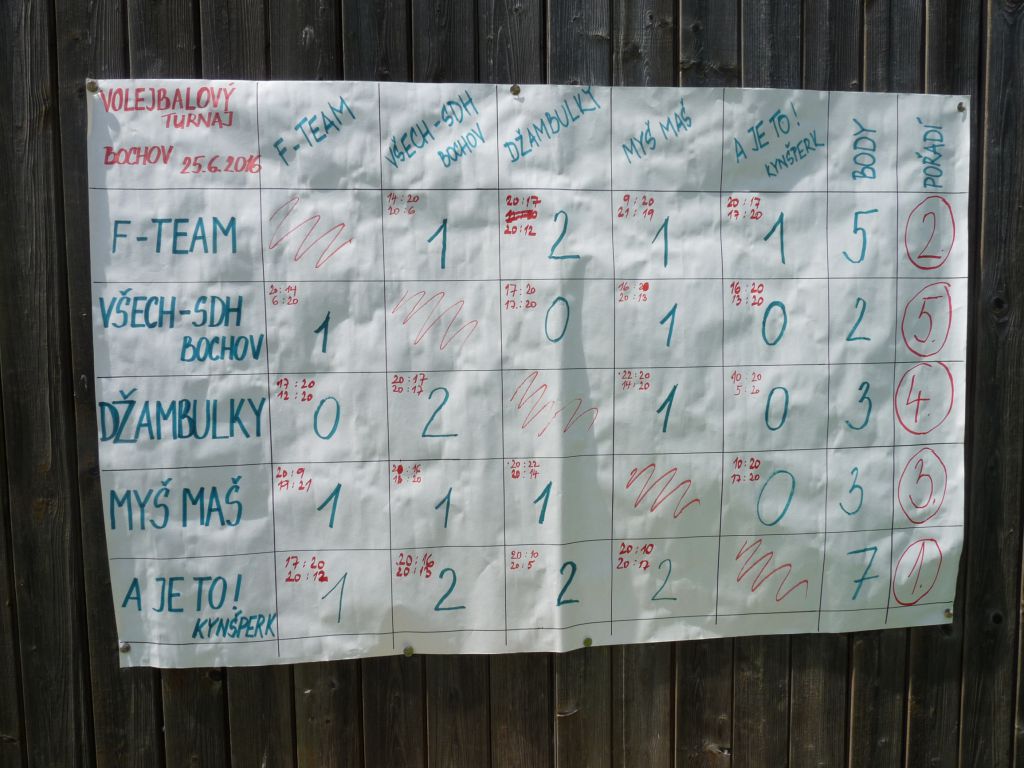 VOLEJBALOVÝ
TURNAJ
BOCHOV 25.6.2016
F-TEAM
VŠECH-SDH
BOCHOV
DŽAMBULKY
MYŠ MAŠ
A JE TO!
KYNŠPERK
BODY
POŘADÍ
F-TEAM
14:20
20:6
1
20:17
20:12
2
9:20
21:19
1
20:17
17:20
1
5
2.
VŠECH-SDH
BOCHOV
20:14
6:20
1
17:20
17:20
0
20:13
1
16:20
13:20
0
2
5.
DŽAMBULKY
17:20
12:20
0
20:17
20:17
2
22:20
14:20
1
10:20
5:20
0
3
4.
MYŠ MAŠ
20:9
1
1
20:22
20:14
1
10:20
17:20
0
3
3.
A JE TO!
KYNŠPERK
17:20
20:12
1
20:16
20:13
2
20:10
20:5
2
20:10
20:17
2
7
1.